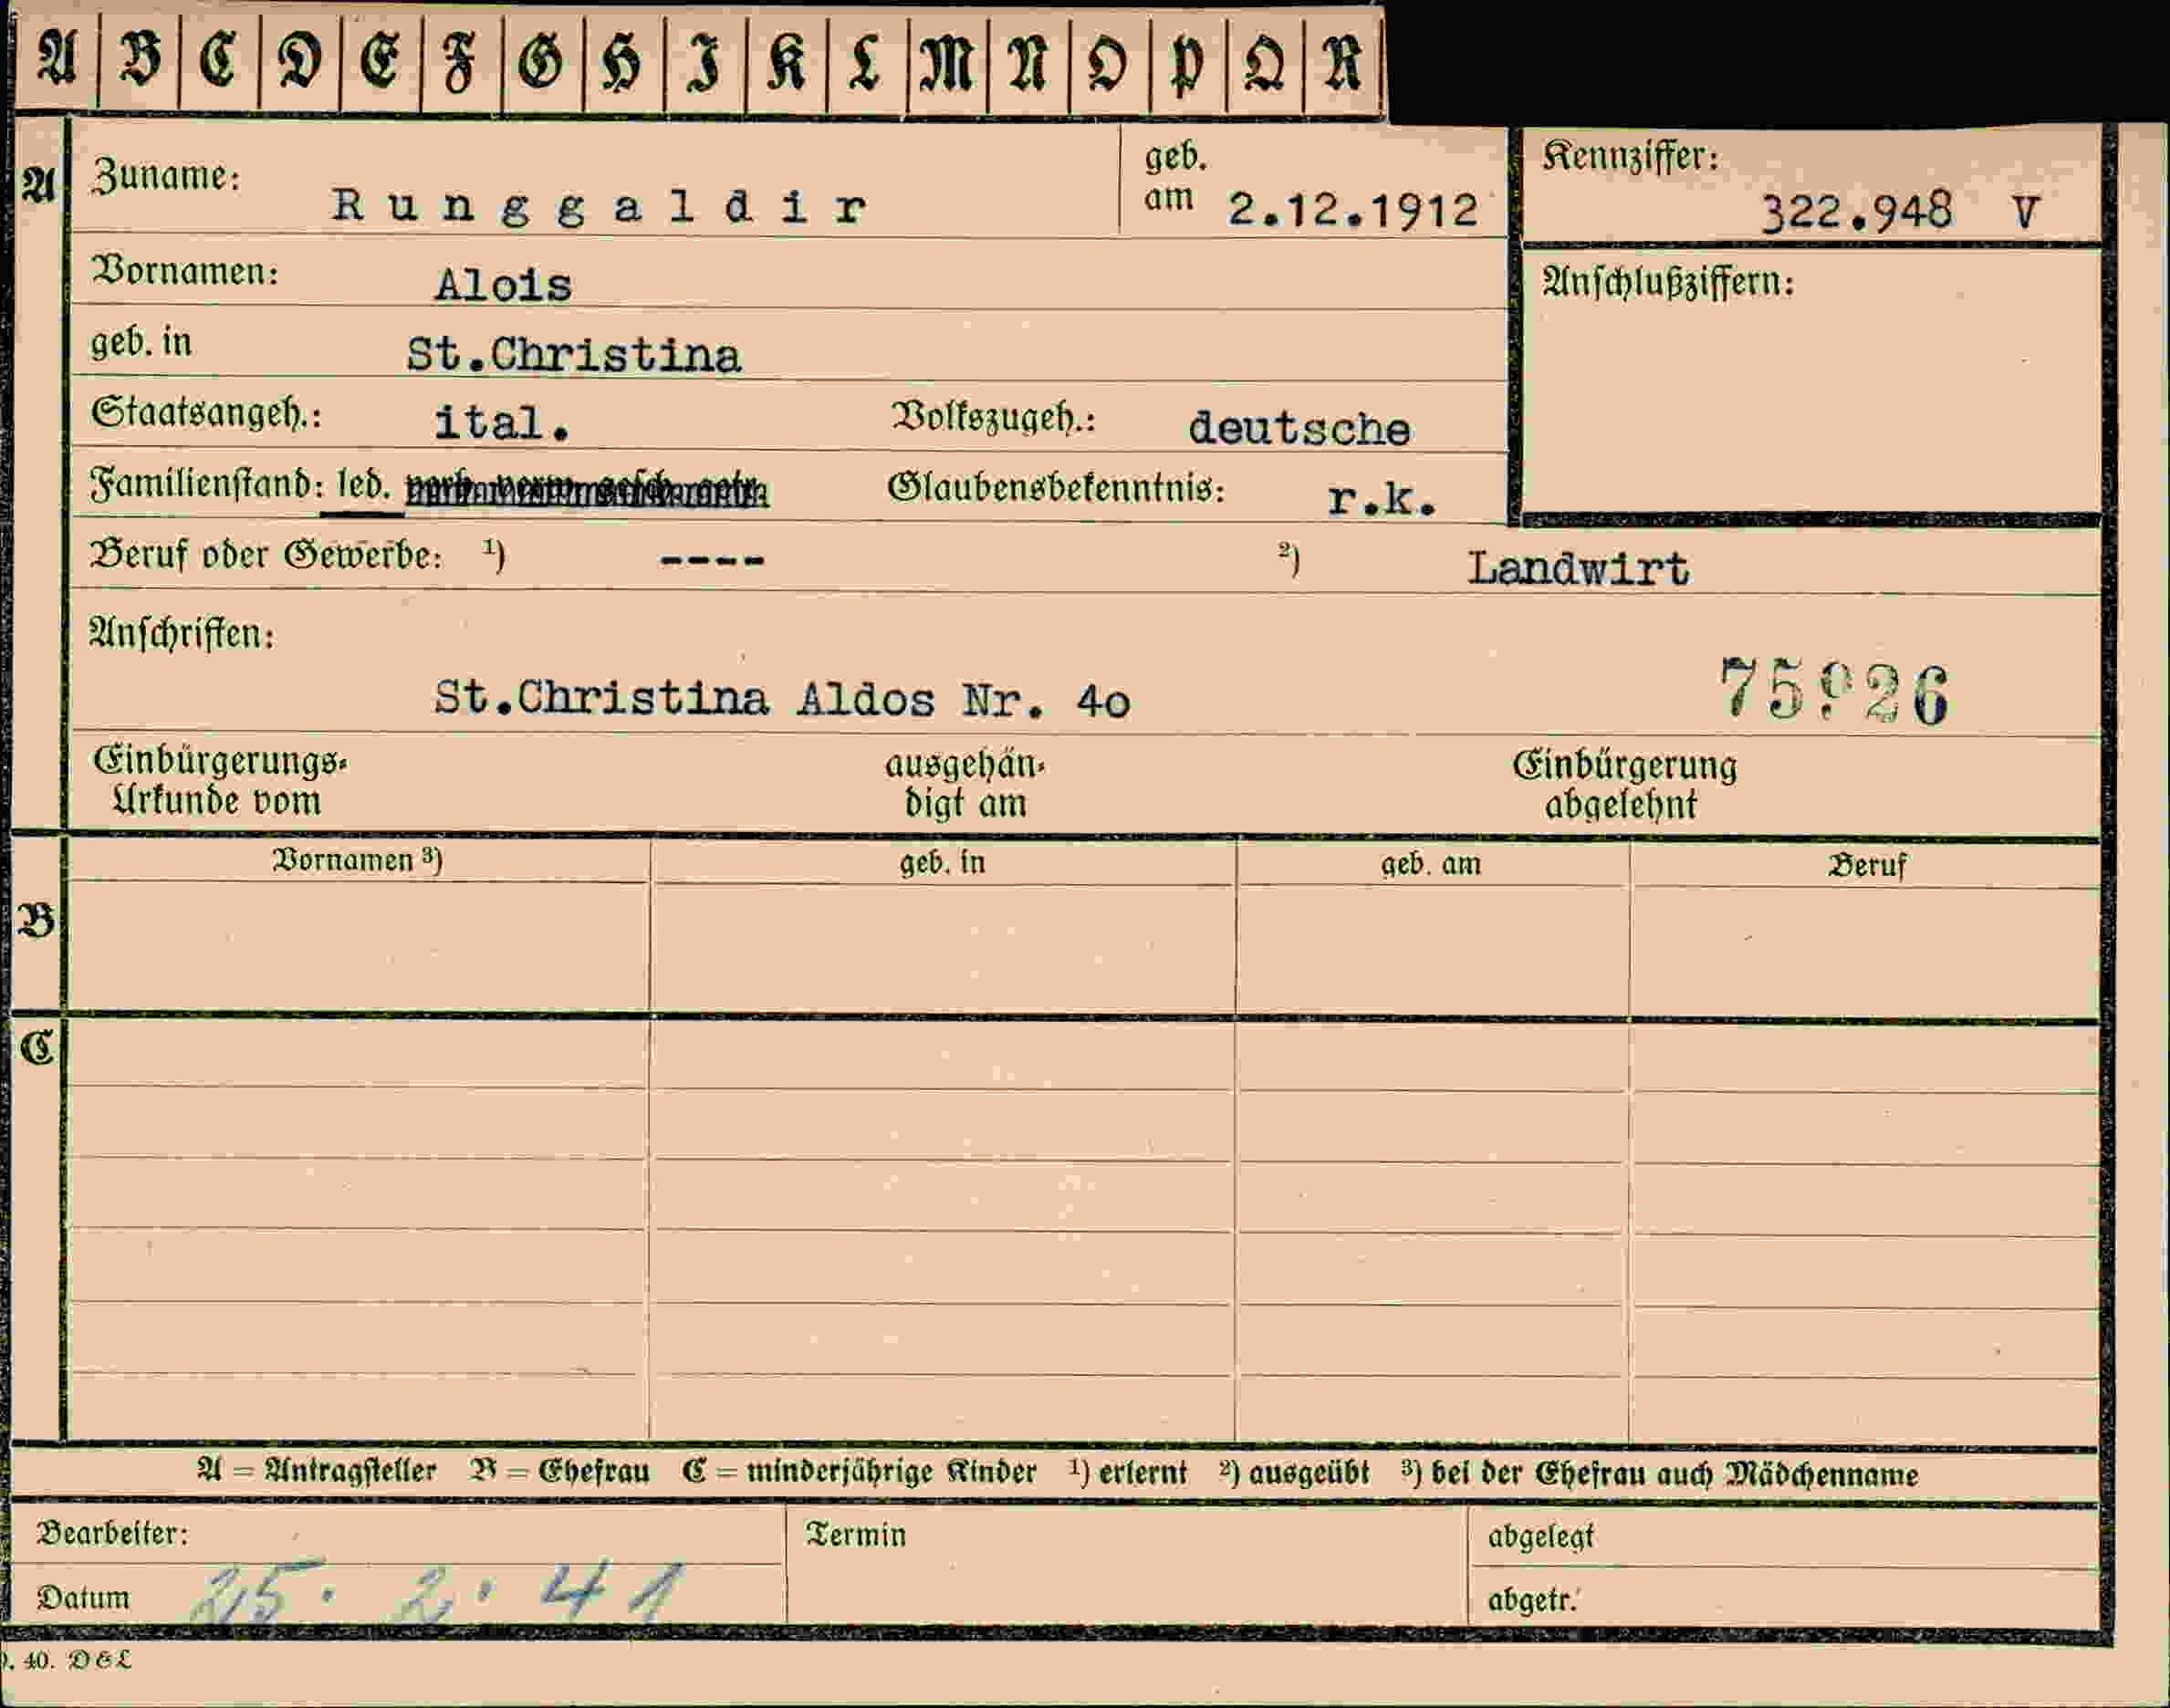 A B C D E F G H I K L M N O P Q R
A Zuname: Runggaldir geb. am 2.12.1912 Kennziffer: 322.948 V
Vornamen: Alois Anschlußziffern:
geb. in St.Christina
Staatsangeh.: ital. Volkszugeh.: deutsche
Familienstand: led. verh. verw. gesch. getr. Glaubensbekenntnis: r.k.
Beruf oder Gewerbe: 1) ---- 2) Landwirt
Anschriften:
St.Christina Aldos Nr. 4o
Einbürgerungs-Urkunde vom ausgehändigt am Einbürgerung abgelehnt
Vornamen 3) geb. in geb. am Beruf
B
C
A = Antragsteller B = Ehefrau C = minderjährige Kinder 1) erlernt 2) ausgeübt 3) bei der Ehefrau auch Mädchenname
Bearbeiter: Termin abgelegt
Datum 25. 2. 41 abgetr.
40. D&L